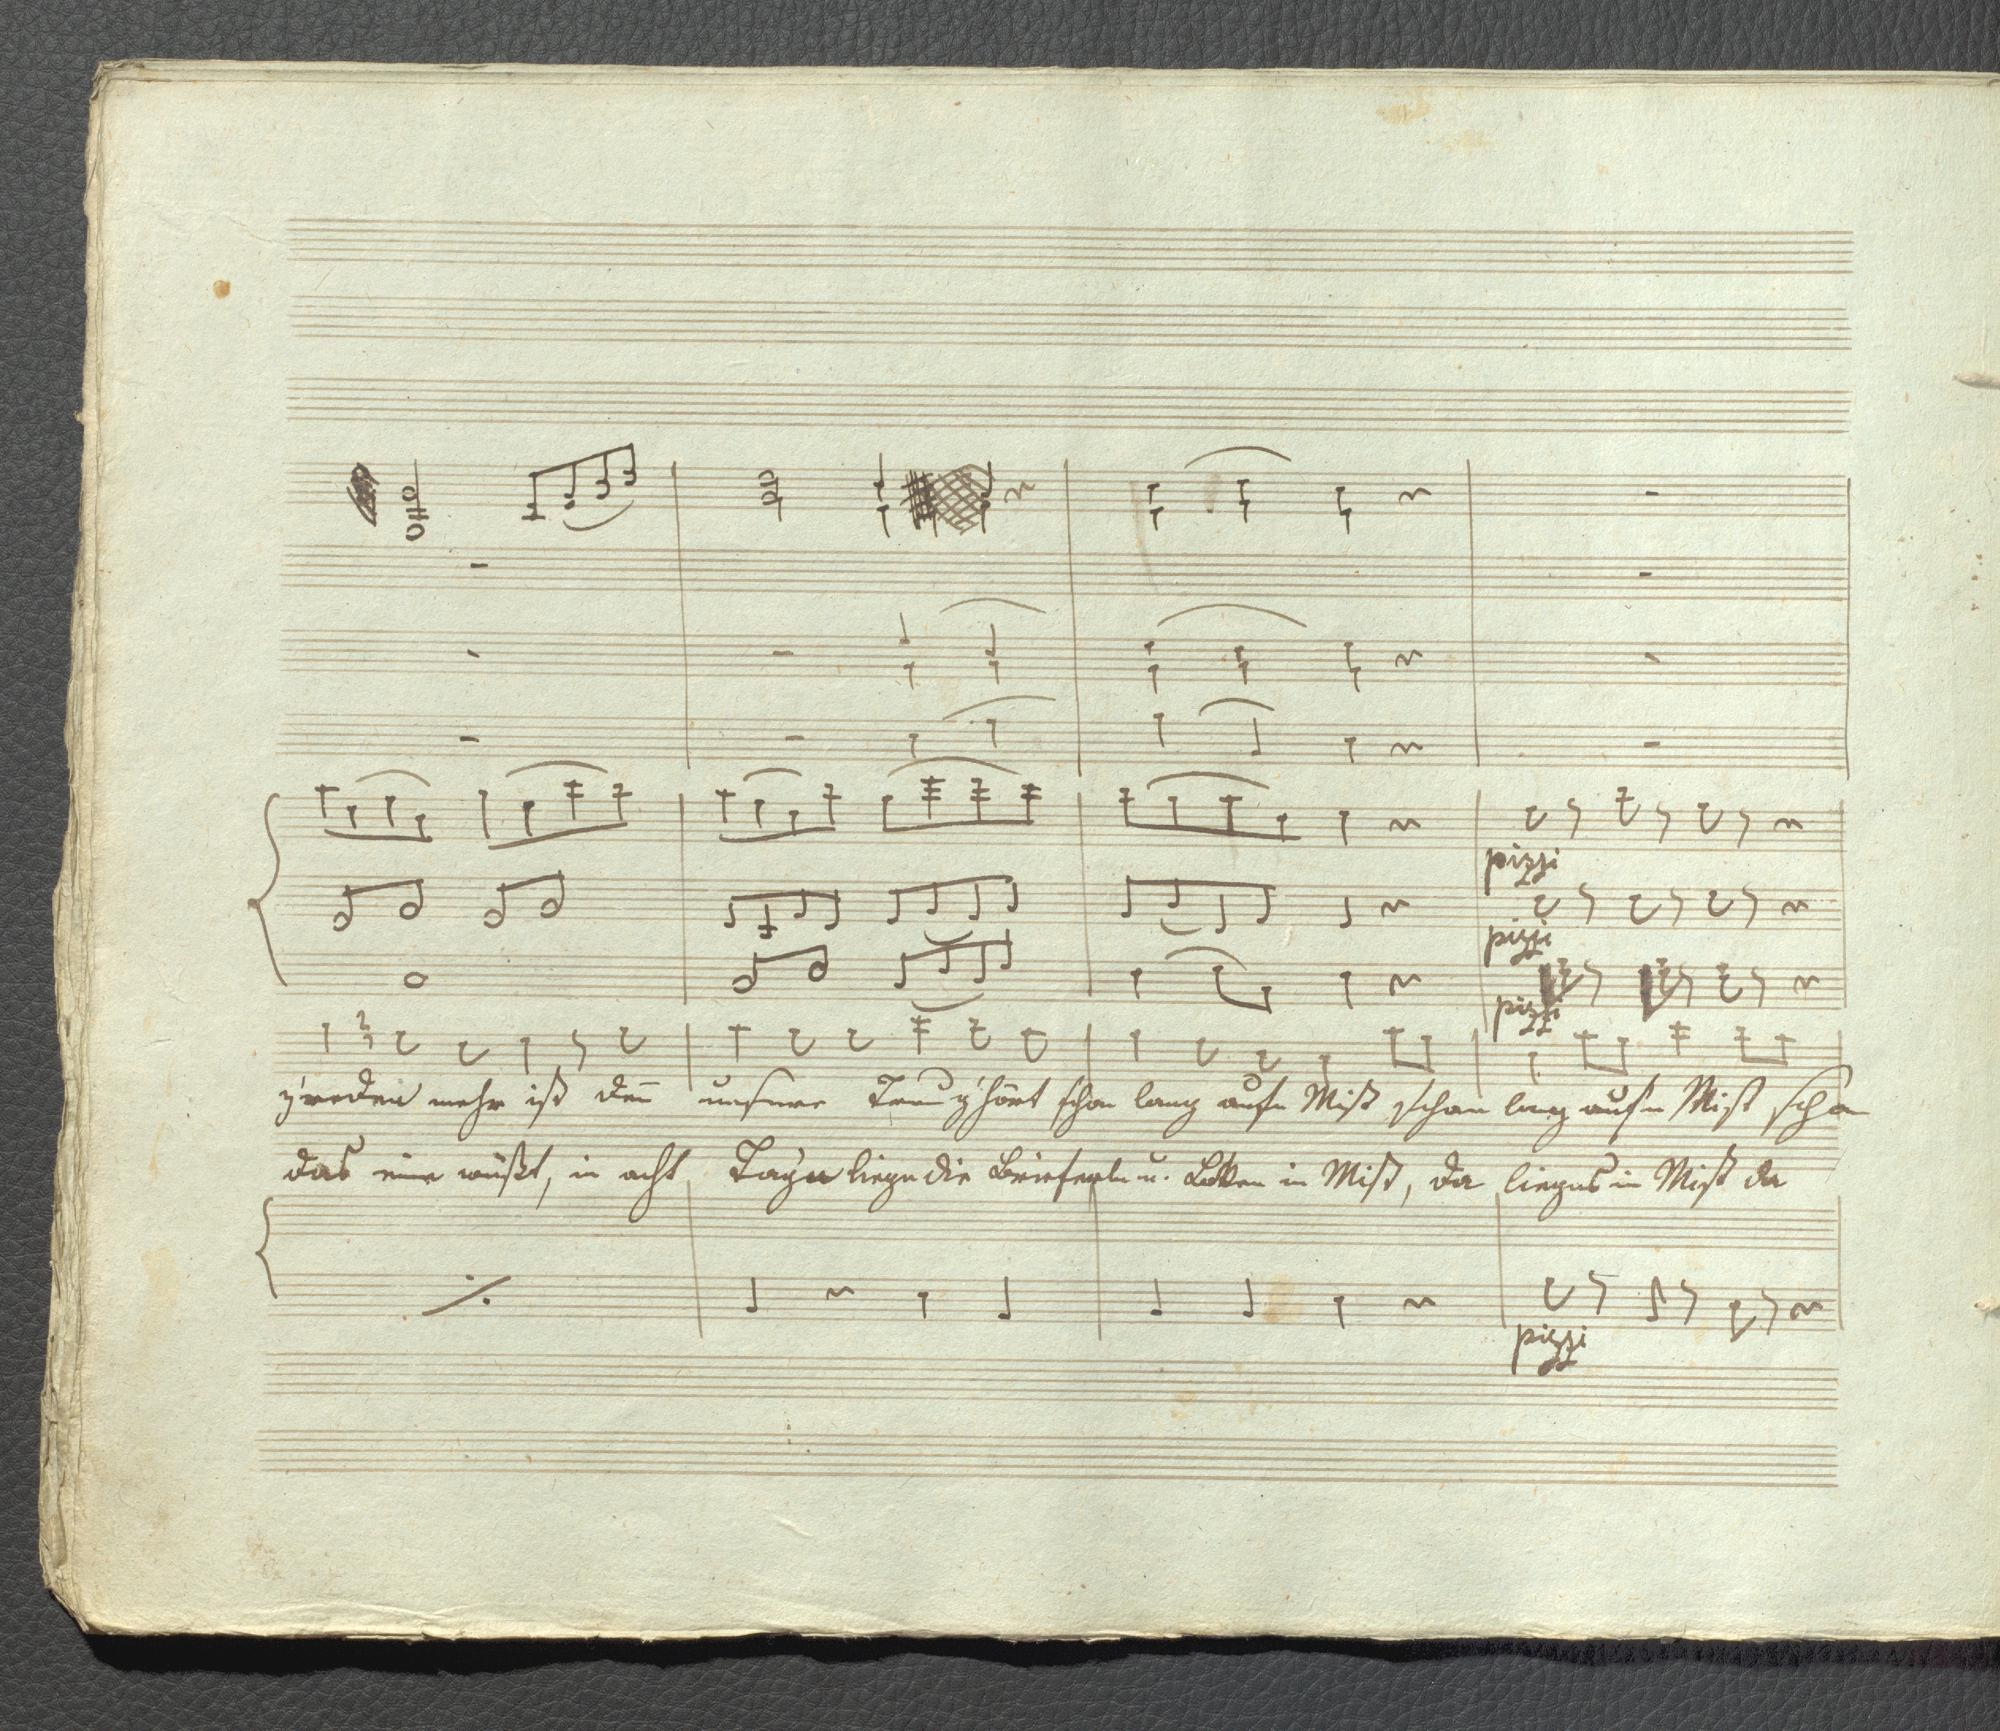 pizzi
pizzi
pizzi
z'reden mehr ist den̄ unsere Treu g'hört schon lang aufn Mist schon lang aufn Mist schon
das eine wüßt, in acht Tagn liegn die Brieferln u. Locken in Mist, da liegns in Mist da
pizzi